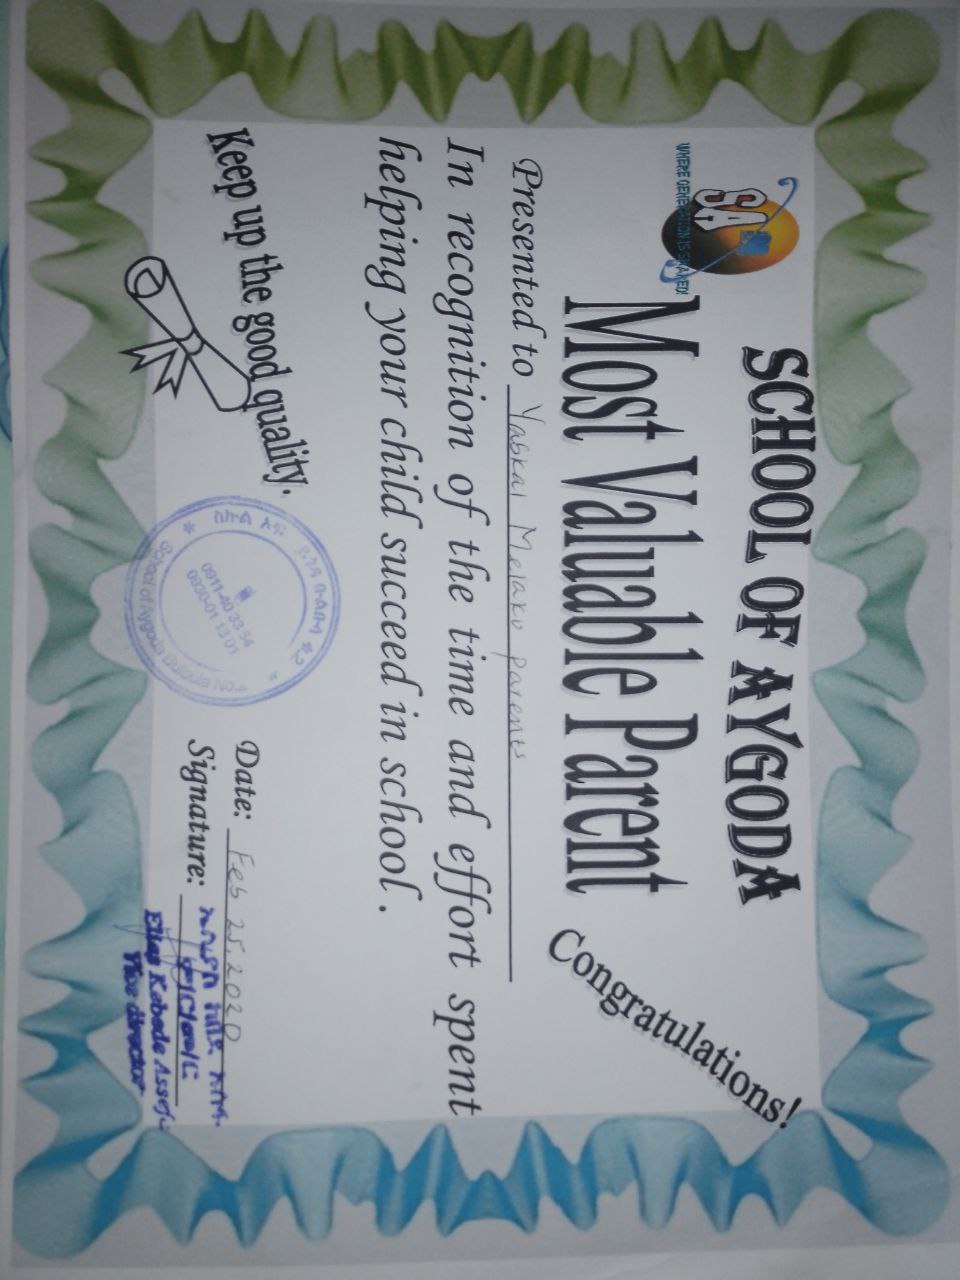 SCHOOL OF AYGODA
SA
WHERE GENERATION IS SHAPED!
Most Valuable Parent
Congratulations!
Presented to Yabkal Melaku parents
In recognition of the time and effort spent
helping your child succeed in school.
Keep up the good quality.
School of Aygoda
0911-40 33 54
0930-01 13 01
Date: Feb 25, 2020
Signature:
Elias Kebede Assefa
Vice director